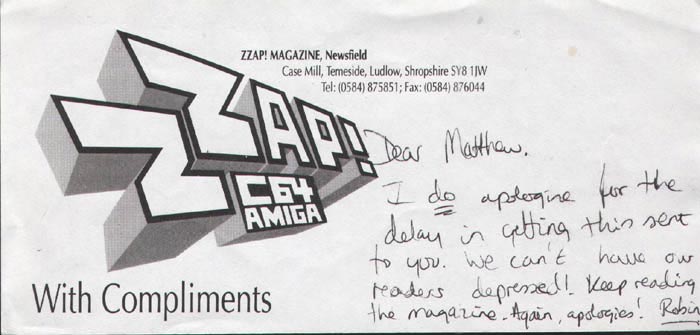 ZZAP! MAGAZINE, Newsfield
Case Mill, Temeside, Ludlow, Shropshire SY8 1JW
Tel: (0584) 875851; Fax: (0584) 876044
ZZAP!
C64
AMIGA
With Compliments
Dear Matthew.
I do apologine for the
delay in getting this sent
to you. We can't have our
readers depressed! Keep reading
the magazine. Again, apologies! Robin